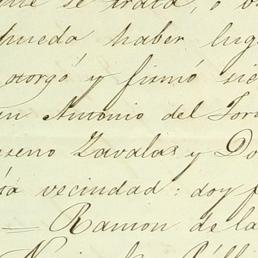 que se trata, o
pueda haber lug
otorgó y firmó sie
Antonio del Tor
Zavalas y Do
vecindad: doy f
= Ramon de la